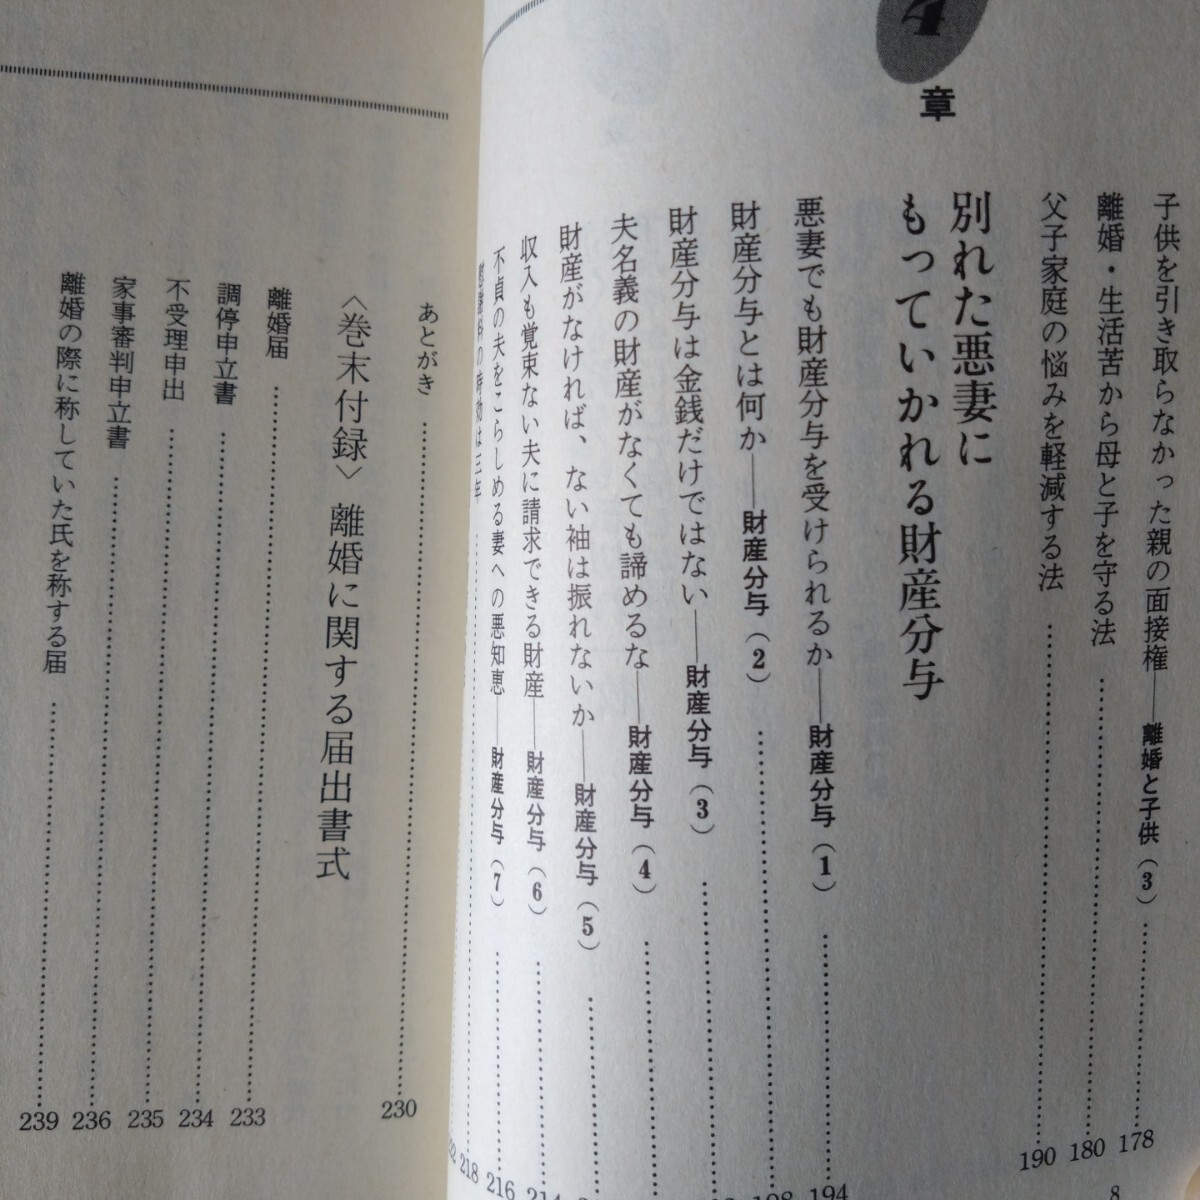 子供を引き取らなかった親の面接権——離婚と子供(3)……178
離婚・生活苦から母と子を守る法……180
父子家庭の悩みを軽減する法……190
4章
別れた悪妻に
もっていかれる財産分与
悪妻でも財産分与を受けられるか——財産分与(1)……194
財産分与とは何か——財産分与(2)……198
財産分与は金銭だけではない——財産分与(3)……
夫名義の財産がなくても諦めるな——財産分与(4)……
財産がなければ、ない袖は振れないか——財産分与(5)……
収入も覚束ない夫に請求できる財産——財産分与(6)……214
不貞の夫をこらしめる妻への悪知恵——財産分与(7)……216
慰謝料の時効は三年……218
8
あとがき……230
〈巻末付録〉離婚に関する届出書式
離婚届……233
調停申立書……234
不受理申出……235
家事審判申立書……236
離婚の際に称していた氏を称する届……239